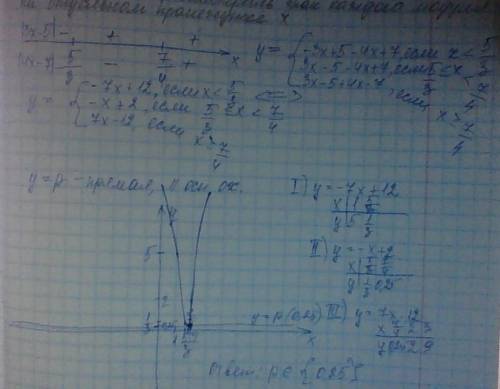 на отдельном промежутке x
|3x-5| - + +
|4x-7| 5/3 - 7/4 + x
y = { -3x+5-4x+7, если x < 5/3
3x-5-4x+7, если 5/3 ≤ x < 7/4
3x-5+4x-7, если x ≥ 7/4
<=>
y = { -7x+12, если x < 5/3
-x+2, если 5/3 ≤ x < 7/4
7x-12, если x ≥ 7/4
y=p - прямая, || оси ox.
y
5
2
1/3
0,25
y=p (0,25)
x
I) y=-7x+12
x | 1 | 5/3
y | 5 | 1/3
II) y=-x+2
x | 5/3 | 7/4
y | 1/3 | 0,25
III) y=7x-12
x | 7/4 | 2 | 3
y | 0,25 | 2 | 9
Ответ: p∈{0,25}